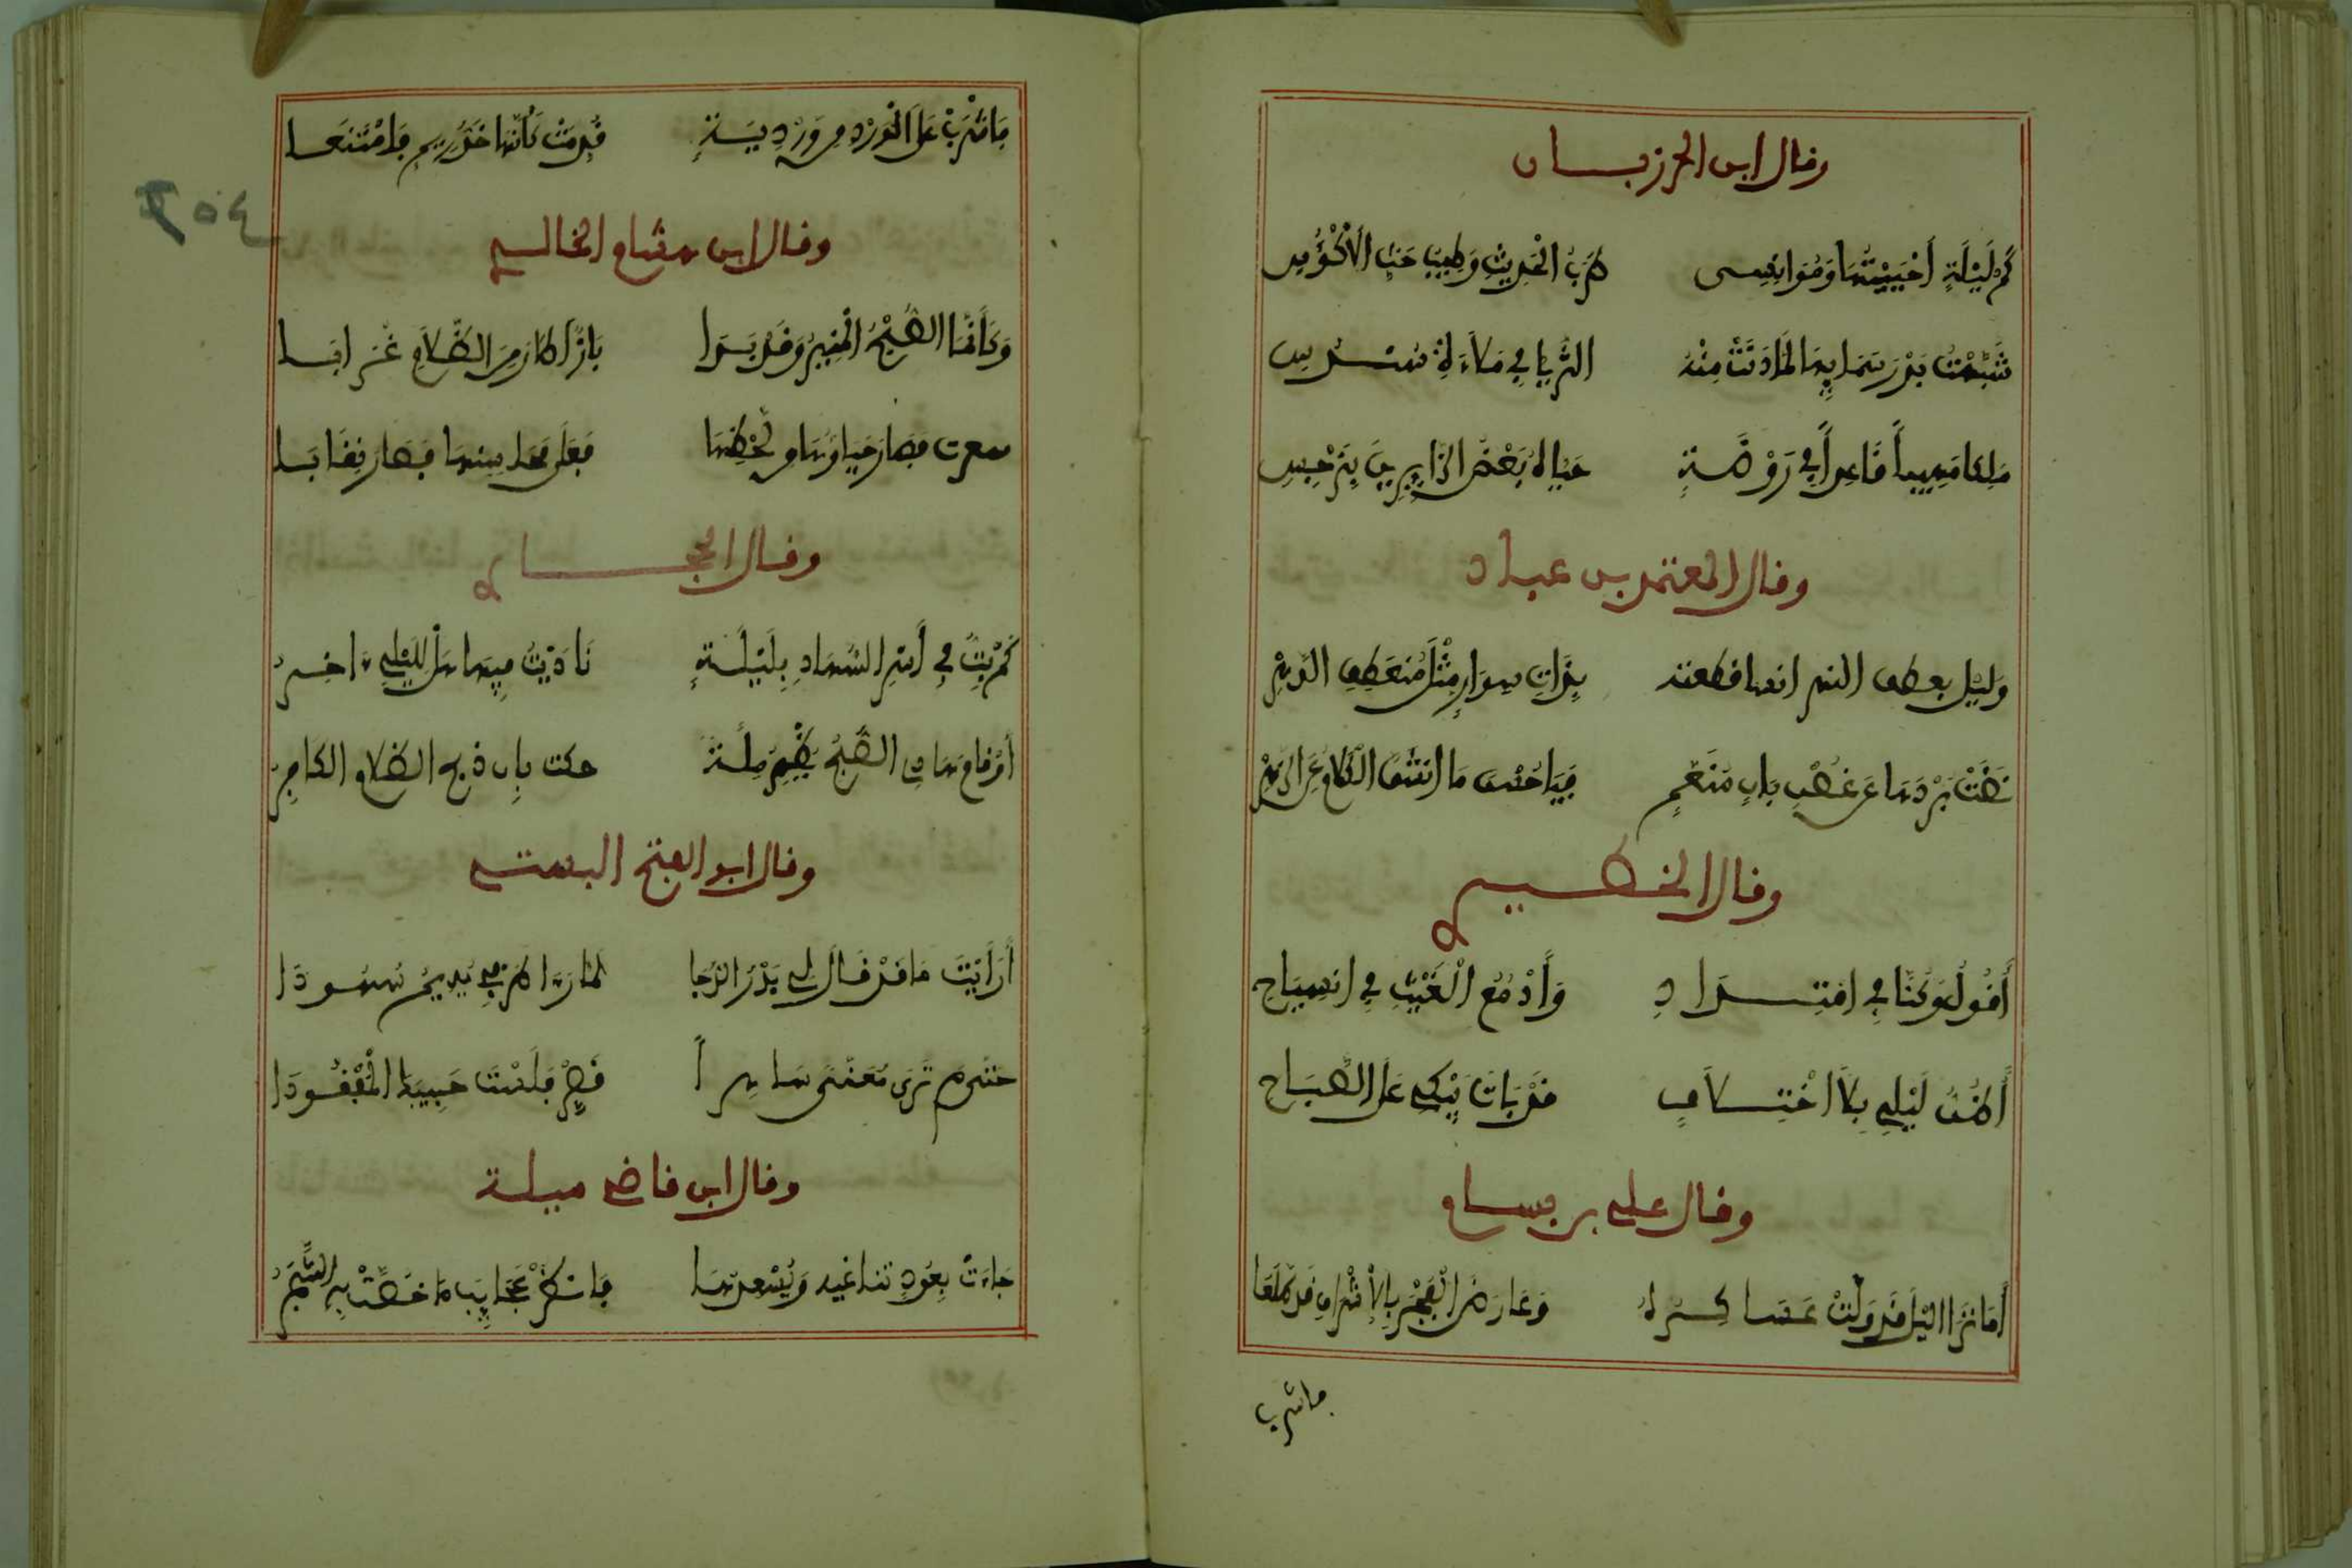 وقال ابن المرزبان
كم ليلة أحييتها ومؤانسي طرف الحديث وطيب حث الأكؤس
شبهت بدر سمايها لما دنت منه الثريا في ملاءة سندس
ملكا مهيبا قاعدا في روضة حياه بعض الزايرين بنرجس
وقال المعتمد بن عباد
وليل بعطف النهر انسا قطعته بذات سوار مثل منعطف النهر
نضت بردها عن غصن بان منعم فيا حسن ما انشق الكمام عن الزهر
وقال الخطيم
أقول وكنا في افتراد وأدمع الغيث في انسياح
أظن ليلي بلا اختلاف فقد بات يبكي على الصباح
وقال علي بن بسام
أما ترا اليل قد ولت عساكره وعارض الفجر بالإشراف قد طلعا
فاشرب
فاشرب على الورد من وردية قدمت كأنها خد ريم فامتنعا
٢٥٤
وقال ابن هشام الخالدي
وكأنما الصبح المنير وقد بدا بازا أطار من الظلام غرابا
فصار حياؤها ولحظها فصار نقابا
وقال الحجام
كم بت في أسر السهاد بليلة ناديت فيها هل لليلي ءاخر
إذ قام هادي الصبح يظهر ملة حكمت بان ذبح الظلام الكافر
وقال ابو الفتح البستي
أرأيت ما قد قال لي بدر الدجا لما رءا طرفي يديم سهودا
حتى م ترى مغنى ساهرا قصر فلست حبيبها المفقودا
وقال ابن قاضي ميلة
جاءت بعود تناغيه ويسعدها فانظر عجايب ما خصت به الشجر